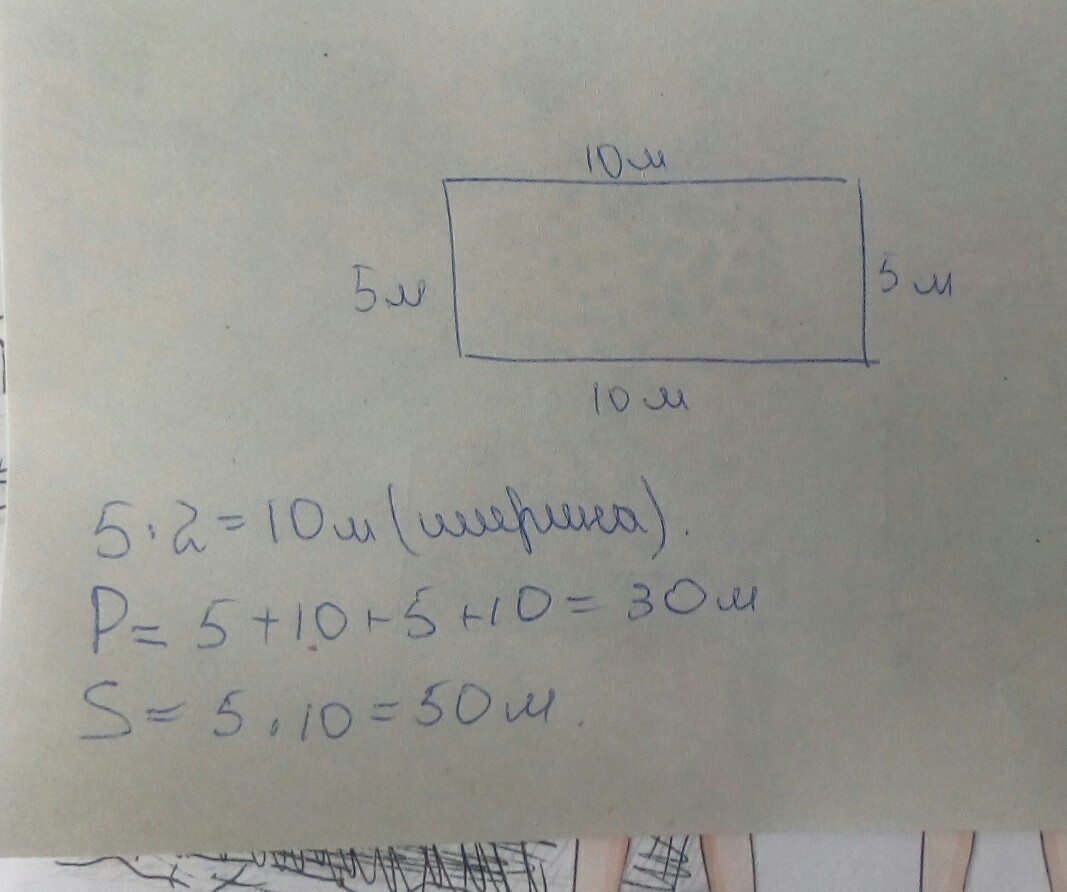 10м
5м 5м
10м
5·2=10м(ширина).
P= 5+10+5+10= 30м
S= 5·10=50м.